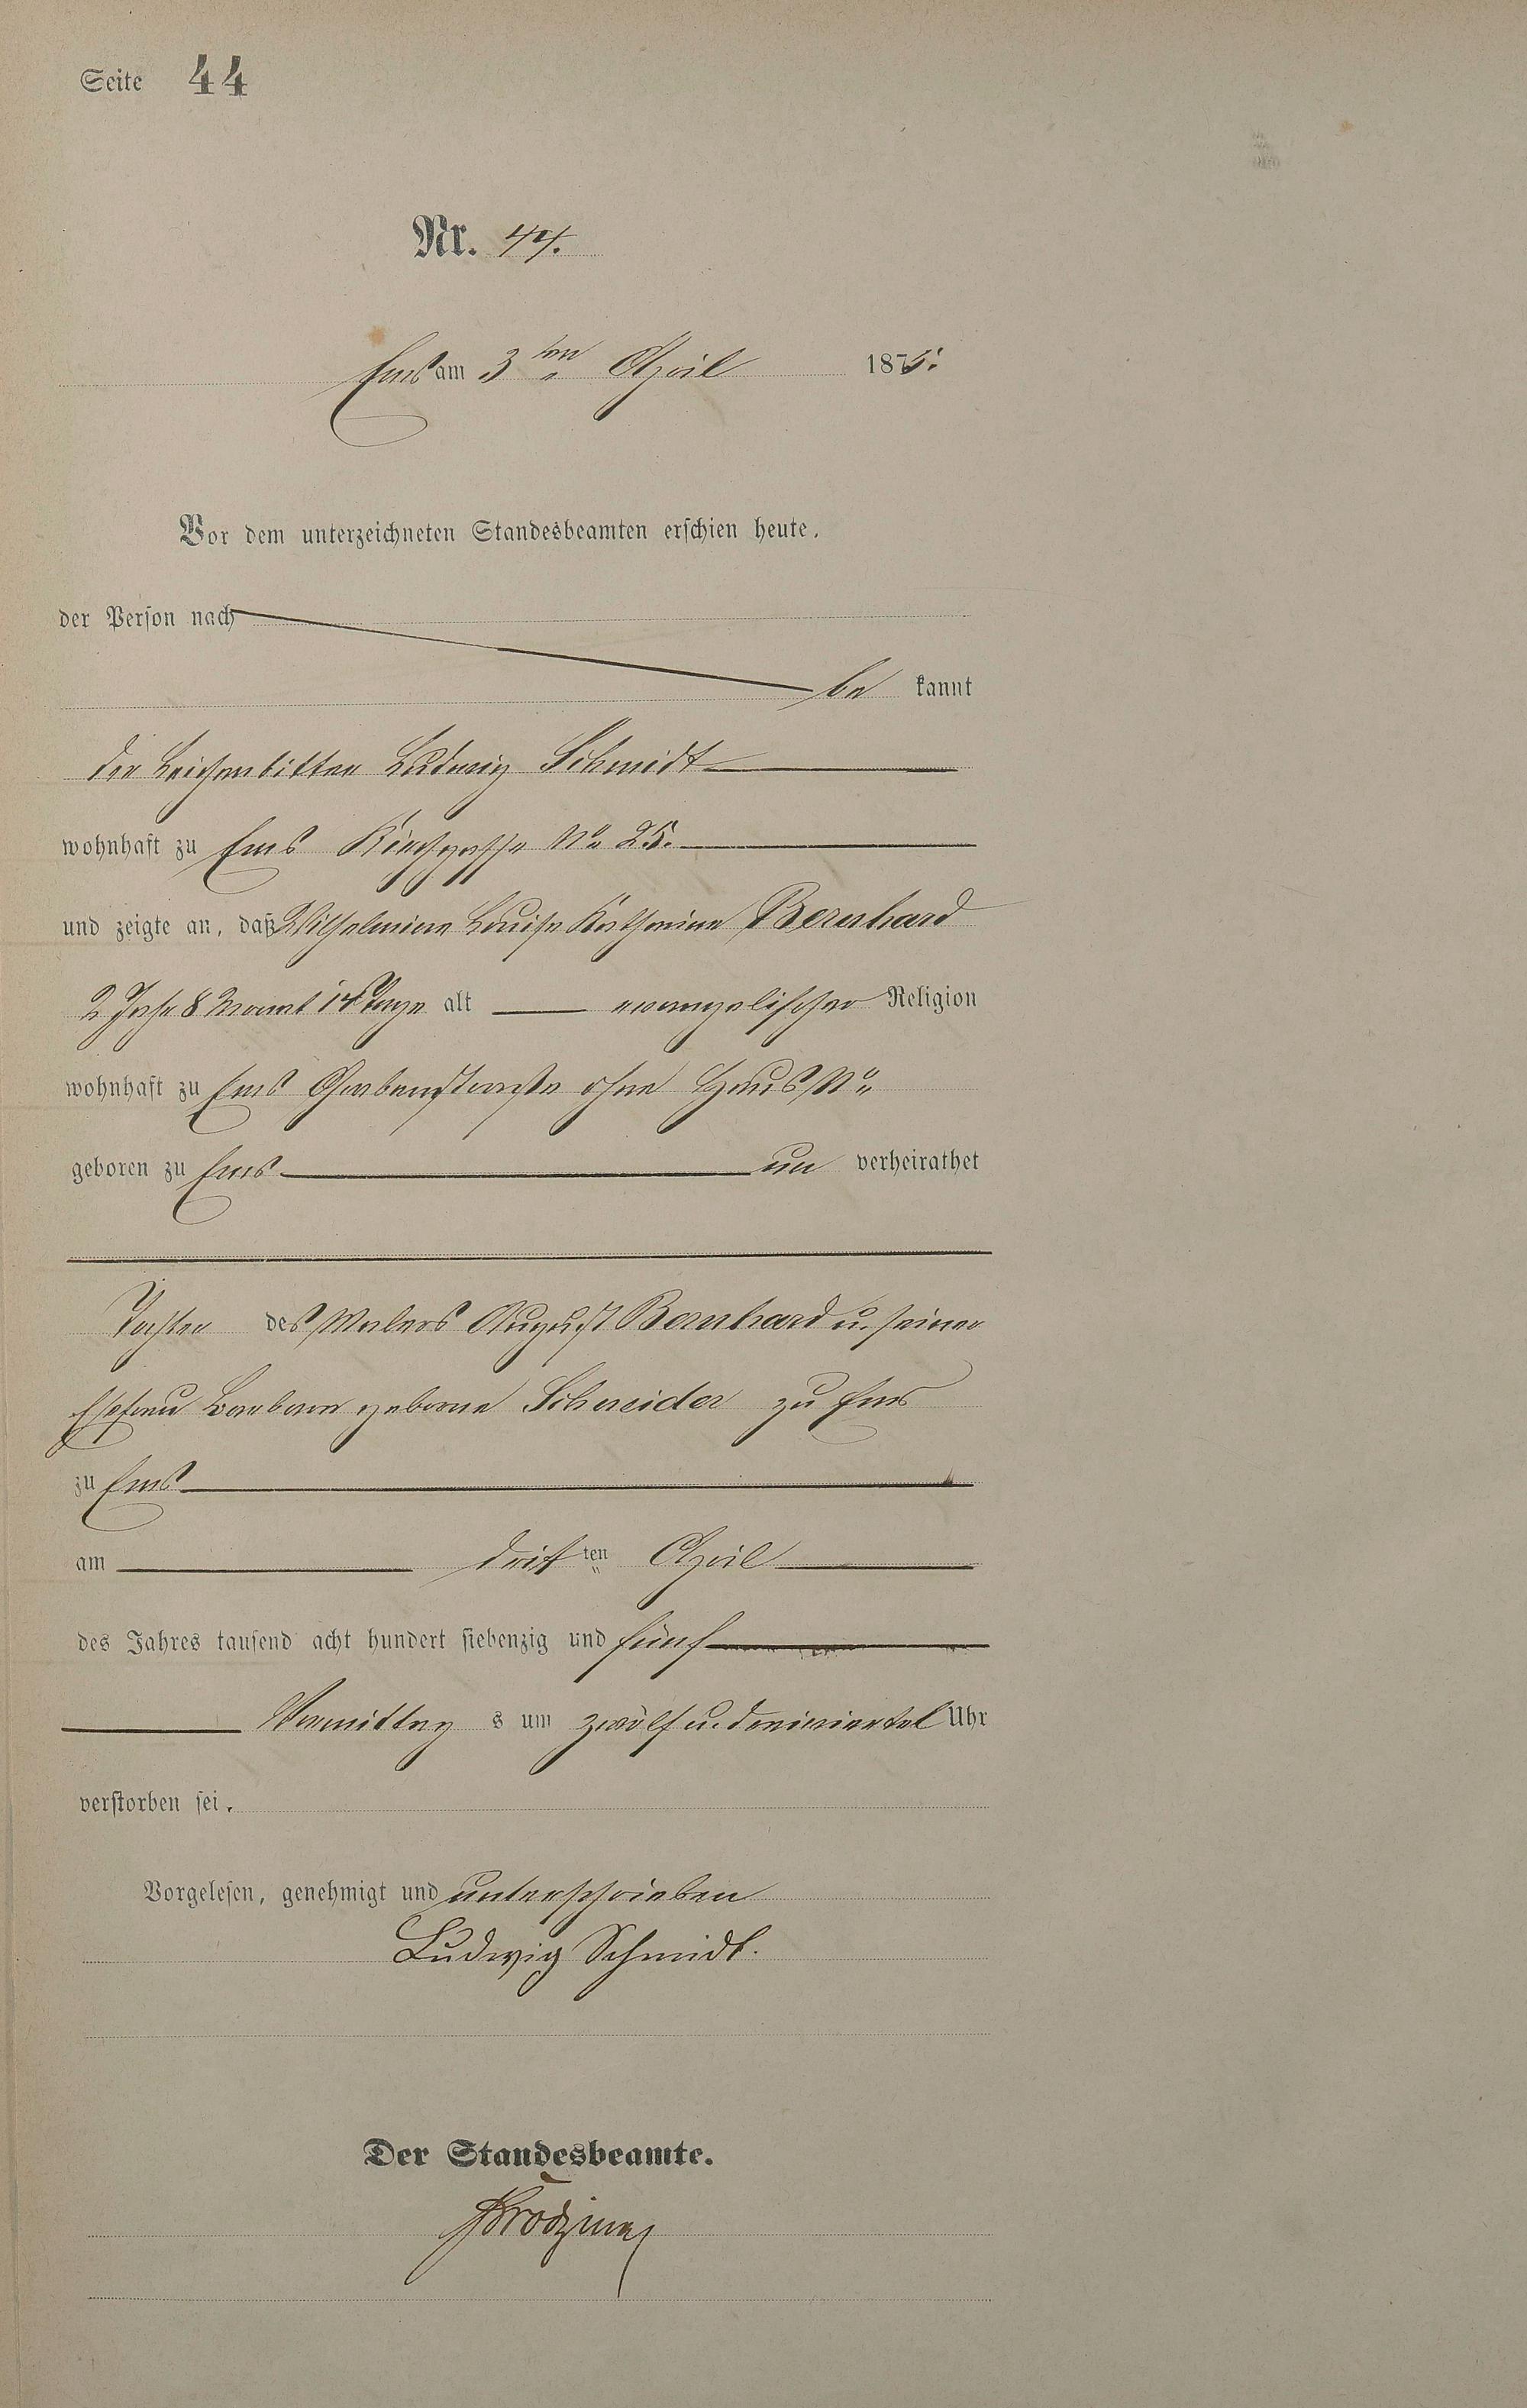 Seite 44
Nr. 44.
Ems am 3ten April 1875.
Vor dem unterzeichneten Standesbeamten erschien heute,
der Person nach
be kannt
der Leichenbitter Ludwig Schmidt
wohnhaft zu Ems Kirchgasse No 25.
und zeigte an, daß Wilhelmine Louise Katharine Bernhard
2 Jahr 8 Monat 14 Tage alt evangelischer Religion
wohnhaft zu Ems Grabenstraße ohne Haus No
geboren zu Ems un verheirathet
Tochter des Malers August Bernhard u. seiner
Ehefrau Barbara geborne Schneider zu Ems
zu Ems
am dritten April
des Jahres tausend acht hundert siebenzig und fünf
Vormittag s um zwölf u. dreiviertel Uhr
verstorben sei.
Vorgelesen, genehmigt und unterschrieben
Ludwig Schmidt.
Der Standesbeamte.